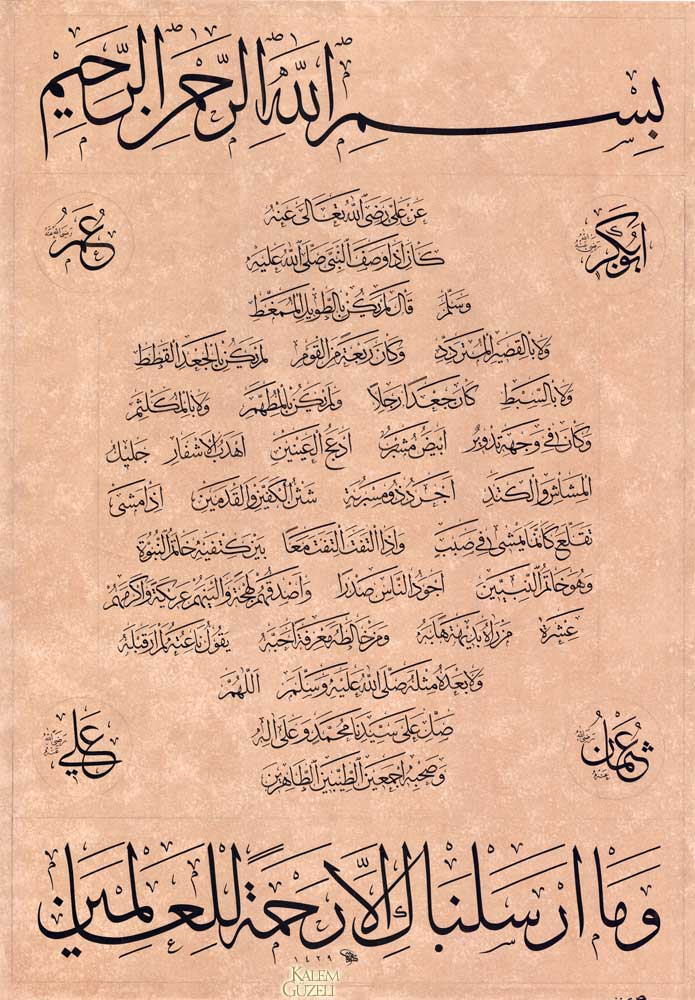 بسم الله الرحمن الرحيم
ابوبكر رضى الله عنه
عمر رضى الله عنه
عن علي رضى الله تعالى عنه
كان اذا وصف النبى صلى الله عليه
وسلم قال لم يكن بالطويل الممغط
ولا بالقصير المتردد وكان ربعة من القوم لم يكن بالجعد القطط
ولا بالسبط كان جعدا رجلا ولم يكن بالمطهم ولا بالمكلثم
وكان فى وجهه تدوير ابيض مشرب ادعج العينين اهدب الاشفار جليل
المشاش والكتد اجرد ذو مسربة شثن الكفين والقدمين اذا مشى
تقلع كانما يمشى فى صبب واذا التفت التفت معا بين كتفيه خاتم النبوة
وهو خاتم النبيين اجود الناس صدرا واصدقهم لهجة والينهم عريكة واكرمهم
عشرة من راه بديهة هابه ومن خالطه معرفة احبه يقول ناعته لم ار قبله
ولا بعده مثله صلى الله عليه وسلم اللهم
صل على سيدنا محمد وعلى اله
وصحبه اجمعين الطيبين الطاهرين
عثمان رضى الله عنه
علي رضى الله عنه
وما ارسلناك الا رحمة للعالمين
١٤٢٩
KALEM
GÜZELİ